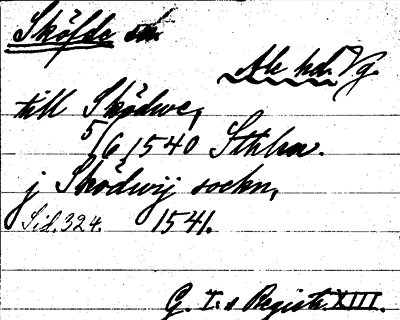 Sköfde sn
Ale hd. Vg.
till Sködwe,
5/6 1540 Sthlm.
j Sködwij sockn,
Sid. 324. 1541.
G. I:s Registr. XIII.